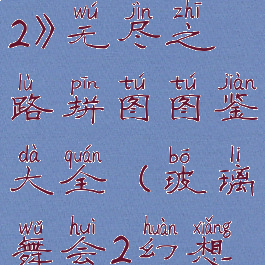 wú jìn zhī
2》无尽之
lù pīn tú tú jiàn
路拼图图鉴
dà quán bō li
大全（玻璃
wǔ huì huàn xiǎng
舞会2幻想